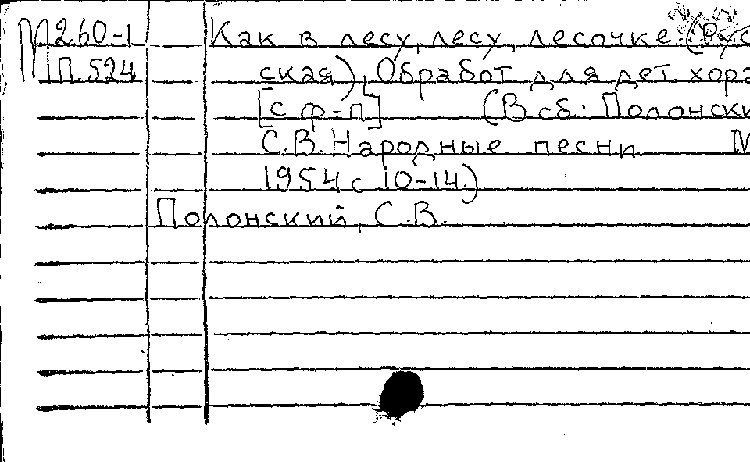 М260-1 Как в лесу, лесу, лесочке. (Рус
П.524 ская), Обработ для дет хора
[с ф-п] (В сб.: Полонски
С.В. Народные песни М
1954 с 10-14.)
Полонский, С.В.